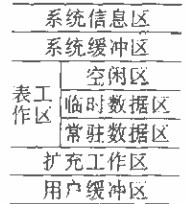 系统信息区
系统缓冲区
表工作区
空闲区
临时数据区
常驻数据区
扩充工作区
用户缓冲区